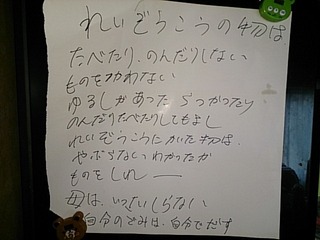 れいぞうこうの物は
たべたり、のんだりしない
ものをかわない
ゆるしがあったらつかったり
のんだりたべたりしてもよし
れいぞうこうにかいた物は、
やぶらないわかったか
ものをしれー
母は、いっさいしらない
自分のごみは、自分でだす